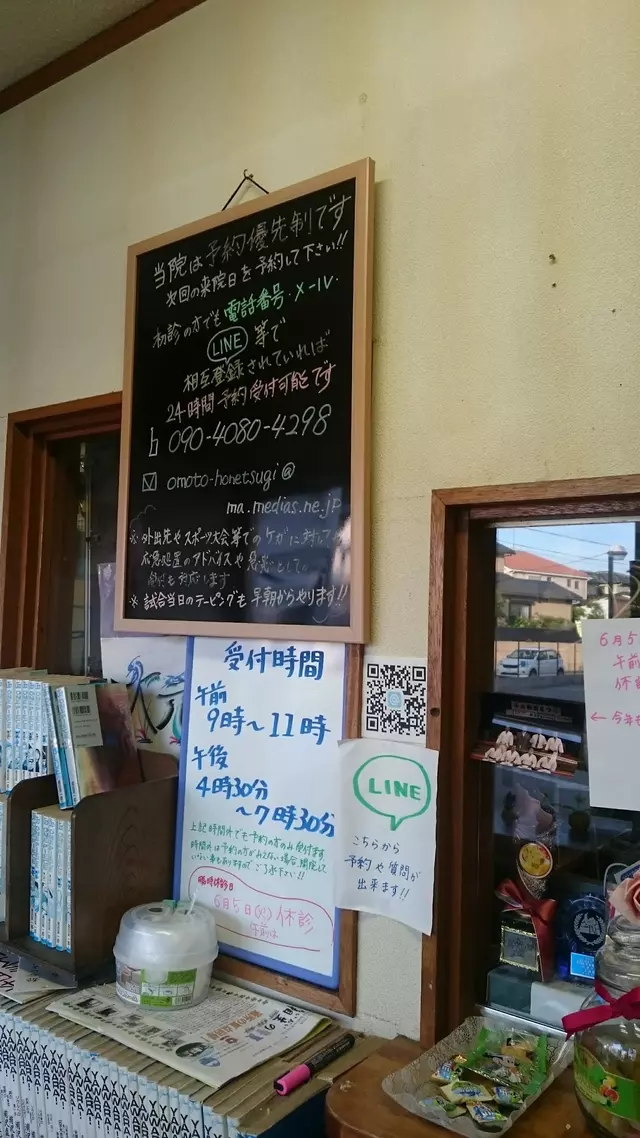 当院は予約優先制です
次回の来院日を予約して下さい!!
初診の方でも電話番号・メール・
LINE 等で
相互登録されていれば
24時間予約受付可能です
090-4080-4298
omoto-honetsugi@
ma.medias.ne.jp
※外出先やスポーツ大会等でのケガに対しての
応急処置のアドバイスや
も対応います
※試合当日のテーピングも早朝からやります!!
受付時間
午前
9時〜11時
午後
4時30分
〜7時30分
上記時間外でも予約の方のみ受付ます
時間外は予約の方がいない場合、閉院して
いない事もありますのでご了承下さい!!
臨時休診日
6月5日(火)休診
午前は
LINE
こちらから
予約や質問が
出来ます!!
6月5
午前
休診
←今年も